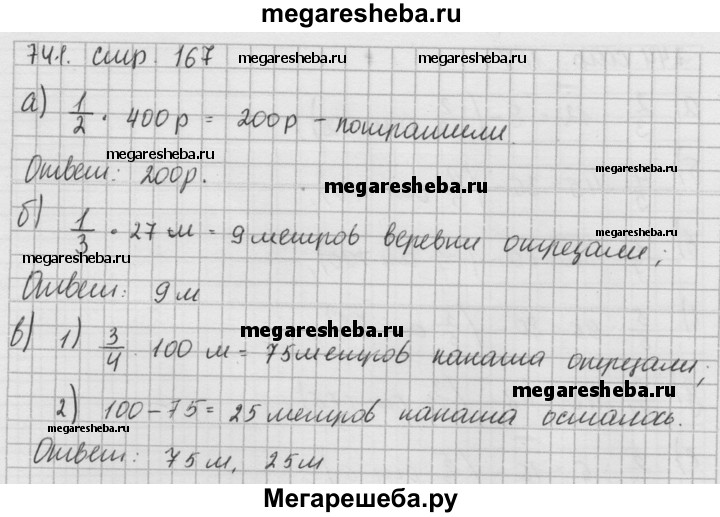 megaresheba.ru
741. стр. 167 megaresheba.ru megaresheba.ru
а) 1/2 · 400 р = 200 р – потратили.
megaresheba.ru megaresheba.ru
Ответ: 200 р. megaresheba.ru
б) 1/3 · 27 м = 9 метров веревки отрезали;
megaresheba.ru megaresheba.ru
Ответ: 9 м
в) 1) 3/4 · 100 м = 75 метров каната отрезали;
megaresheba.ru
2) 100 – 75 = 25 метров каната осталось.
megaresheba.ru megaresheba.ru
Ответ: 75 м, 25 м
Мегарешеба.ру